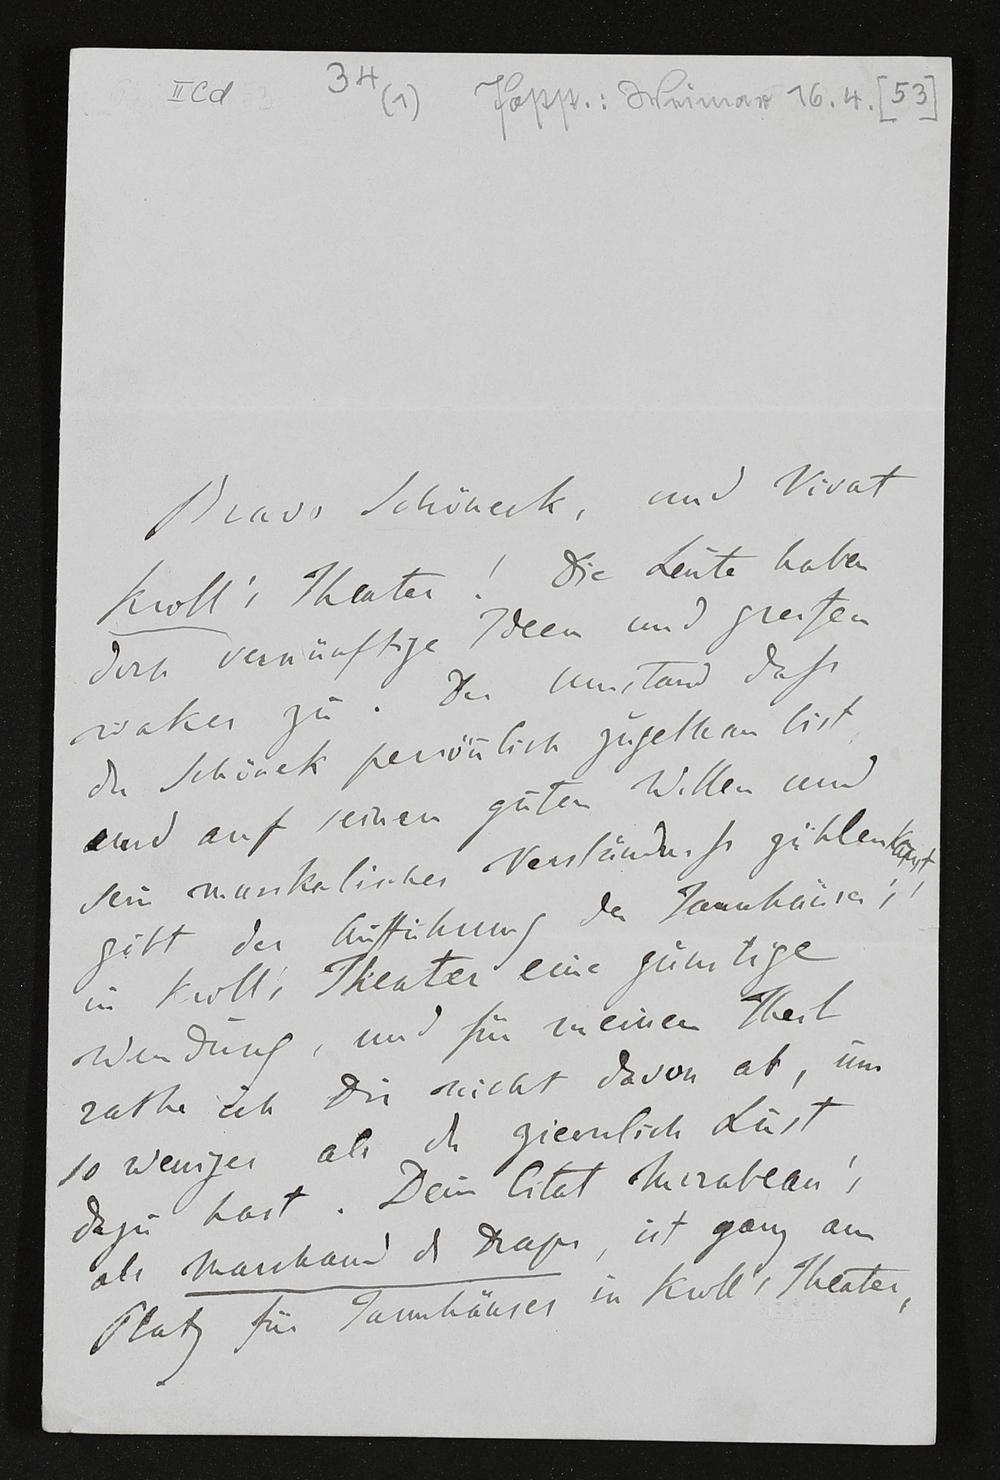 II Cd 34 (1) Kapp.: Weimar 16. 4. [53]
Bravo Schöneck, und Vivat
Kroll's Theater! Die Leute haben
doch vernünftige Ideen und greifen
waker zu. Der Umstand dass
du Schöneck persönlich zugethan bist
und auf seinen guten Willen und
sein musikalisches Verständniss zählen kannst
gibt der Aufführung des Tannhäuser's
in Kroll's Theater eine günstige
Wendung, und für meinen Theil
rathe ich Dir nicht davon ab, um
so weniger als du ziemlich Lust
dazu hast. Dein Citat Mirabeau's
als Marchand de Draps, ist ganz am
Platz für Tannhäuser in Kroll's Theater,